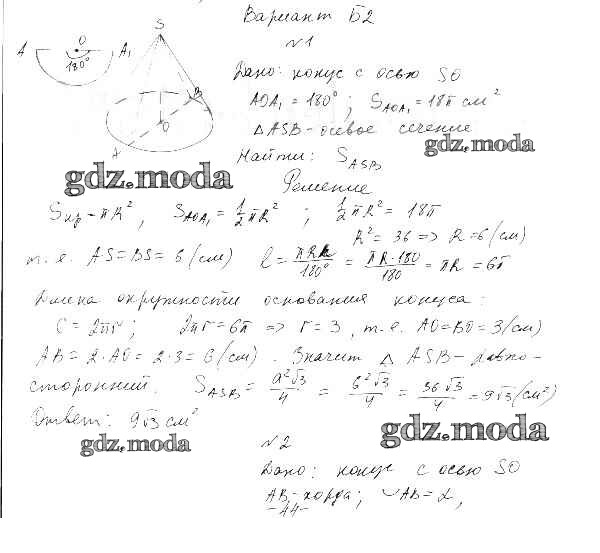 Вариант Б2
№1
S
A O A₁
180°
B
O
A
Дано: конус с осью SO
AOA₁ = 180°; S_AOA₁ = 18π см²
△ASB - осевое сечение
gdz.moda
Найти: S_ASB
gdz.moda
Решение
S_кр = πR², S_AOA₁ = ½πR²; ½πR² = 18π
R² = 36 => R = 6 (см)
т.е. AS = BS = 6 (см) l = πRα/180° = πR·180/180 = πR = 6π
Длина окружности основания конуса:
C = 2πr; 2πr = 6π => r = 3, т.е. AO = BO = 3 (см)
AB = 2·AO = 2·3 = 6 (см). Значит △ASB - равно-
сторонний. S_ASB = a²√3/4 = 6²√3/4 = 36√3/4 = 9√3 (см²)
Ответ: 9√3 см²
gdz.moda
gdz.moda
№2
Дано: конус с осью SO
AB - хорда; ◡AB = α,
-44-